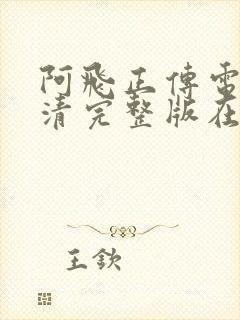 阿飛正傳電
清完整版在
王欽